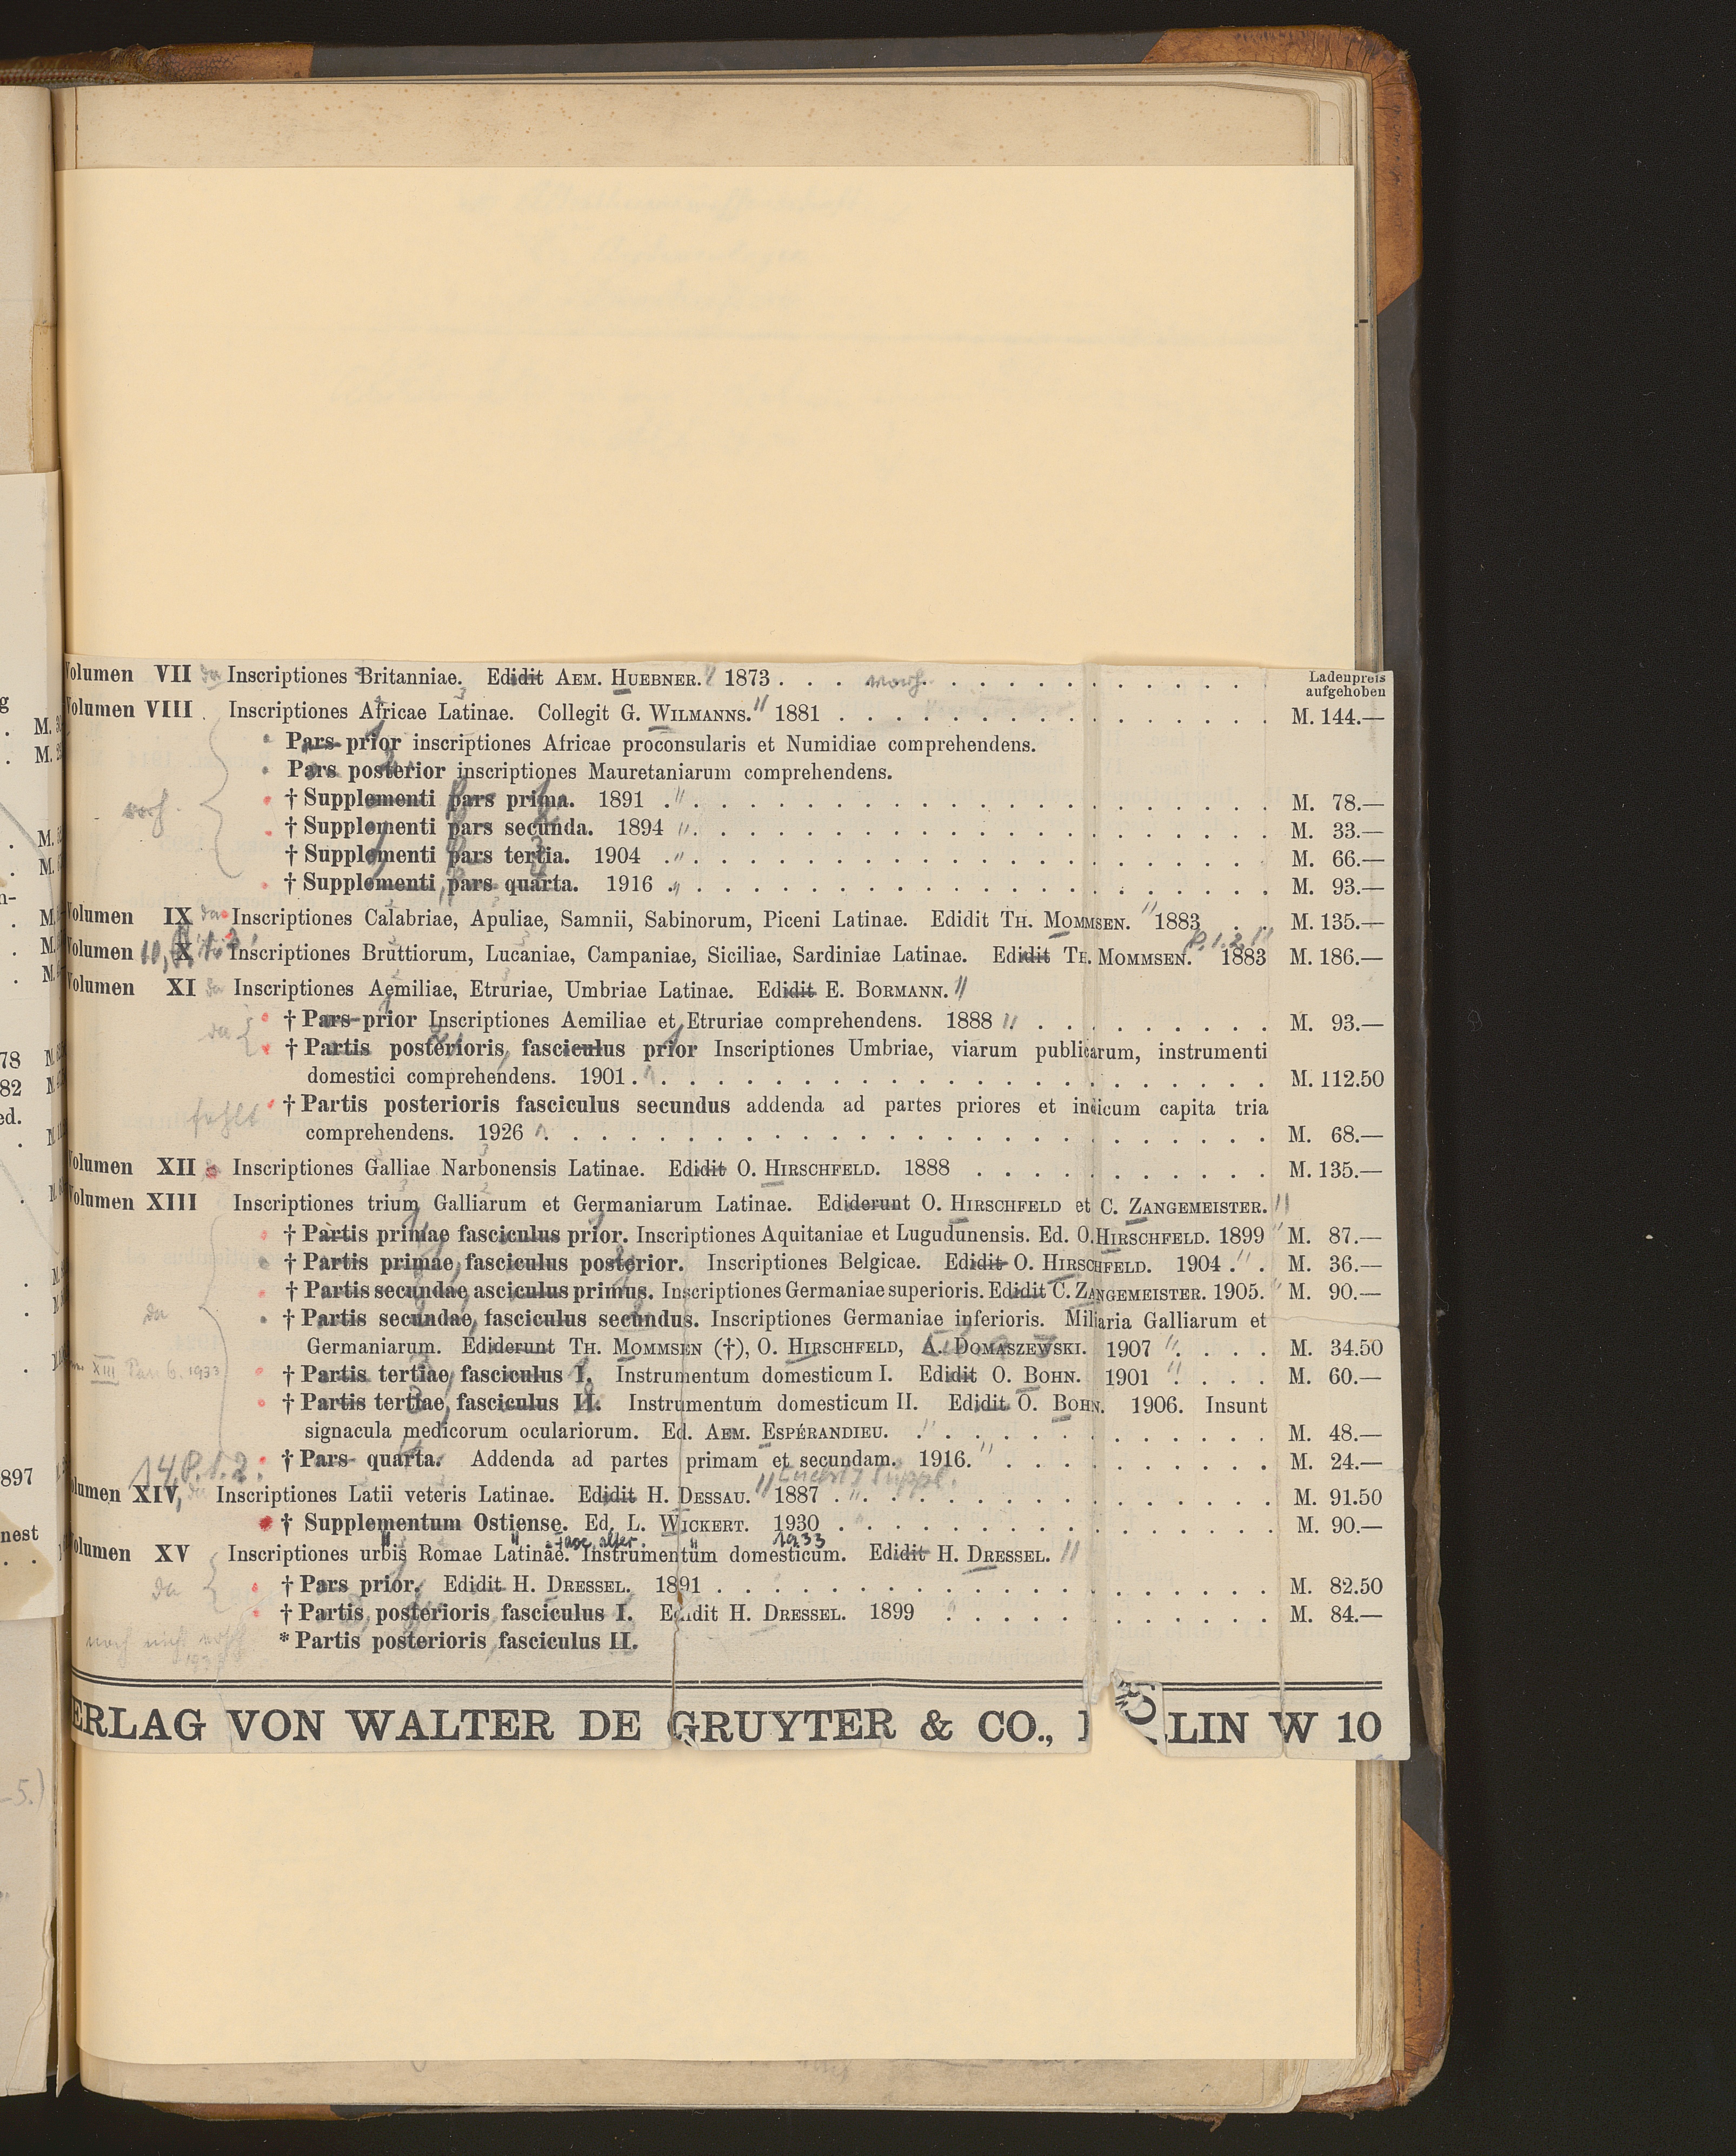 Volumen VII da Inscriptiones Britanniae. Edidit AEM. HUEBNER. 1873 . . . vorh. . . . Ladenpreis
aufgehoben
Volumen VIII. Inscriptiones Africae Latinae. Collegit G. WILMANNS. 1881 . . . M. 144.—
Pars prior inscriptiones Africae proconsularis et Numidiae comprehendens.
Pars posterior inscriptiones Mauretaniarum comprehendens.
vorh. † Supplementi pars prima. 1891 . . . M. 78.—
† Supplementi pars secunda. 1894 . . . M. 33.—
† Supplementi pars tertia. 1904 . . . M. 66.—
† Supplementi pars quarta. 1916 . . . M. 93.—
Volumen IX da Inscriptiones Calabriae, Apuliae, Samnii, Sabinorum, Piceni Latinae. Edidit TH. MOMMSEN. 1883 . . M. 135.—
P. 1. 2
Volumen X Inscriptiones Bruttiorum, Lucaniae, Campaniae, Siciliae, Sardiniae Latinae. Edidit TH. MOMMSEN. 1883 M. 186.—
Volumen XI da Inscriptiones Aemiliae, Etruriae, Umbriae Latinae. Edidit E. BORMANN.
da † Pars prior Inscriptiones Aemiliae et Etruriae comprehendens. 1888 . . . M. 93.—
† Partis posterioris fasciculus prior Inscriptiones Umbriae, viarum publicarum, instrumenti
domestici comprehendens. 1901 . . . M. 112.50
fehlt † Partis posterioris fasciculus secundus addenda ad partes priores et indicum capita tria
comprehendens. 1926 . . . M. 68.—
Volumen XII Inscriptiones Galliae Narbonensis Latinae. Edidit O. HIRSCHFELD. 1888 . . . M. 135.—
Volumen XIII Inscriptiones trium Galliarum et Germaniarum Latinae. Ediderunt O. HIRSCHFELD et C. ZANGEMEISTER.
† Partis primae fasciculus prior. Inscriptiones Aquitaniae et Lugudunensis. Ed. O. HIRSCHFELD. 1899 M. 87.—
† Partis primae fasciculus posterior. Inscriptiones Belgicae. Edidit O. HIRSCHFELD. 1904 . . M. 36.—
† Partis secundae asciculus primus. Inscriptiones Germaniae superioris. Edidit C. ZANGEMEISTER. 1905. M. 90.—
da † Partis secundae fasciculus secundus. Inscriptiones Germaniae inferioris. Miliaria Galliarum et
Germaniarum. Ediderunt TH. MOMMSEN (†), O. HIRSCHFELD, A. DOMASZEWSKI. 1907 . . . M. 34.50
XIII Pars 6. 1933 † Partis tertiae fasciculus I. Instrumentum domesticum I. Edidit O. BOHN. 1901 . . . M. 60.—
† Partis tertiae fasciculus II. Instrumentum domesticum II. Edidit O. BOHN. 1906. Insunt
signacula medicorum oculariorum. Ed. AEM. ESPÉRANDIEU. . . . M. 48.—
† Pars quarta. Addenda ad partes primam et secundam. 1916. . . . M. 24.—
14 P. 1. 2.
Volumen XIV, Inscriptiones Latii veteris Latinae. Edidit H. DESSAU. 1887 . . . M. 91.50
† Supplementum Ostiense. Ed. L. WICKERT. 1930 . . . M. 90.—
1933
Volumen XV Inscriptiones urbis Romae Latinae. Instrumentum domesticum. Edidit H. DRESSEL.
da † Pars prior. Edidit H. DRESSEL. 1891 . . . M. 82.50
† Partis posterioris fasciculus I. Edidit H. DRESSEL. 1899 . . . M. 84.—
noch nicht ersch. * Partis posterioris fasciculus II.
ERLAG VON WALTER DE GRUYTER & CO., LIN W 10